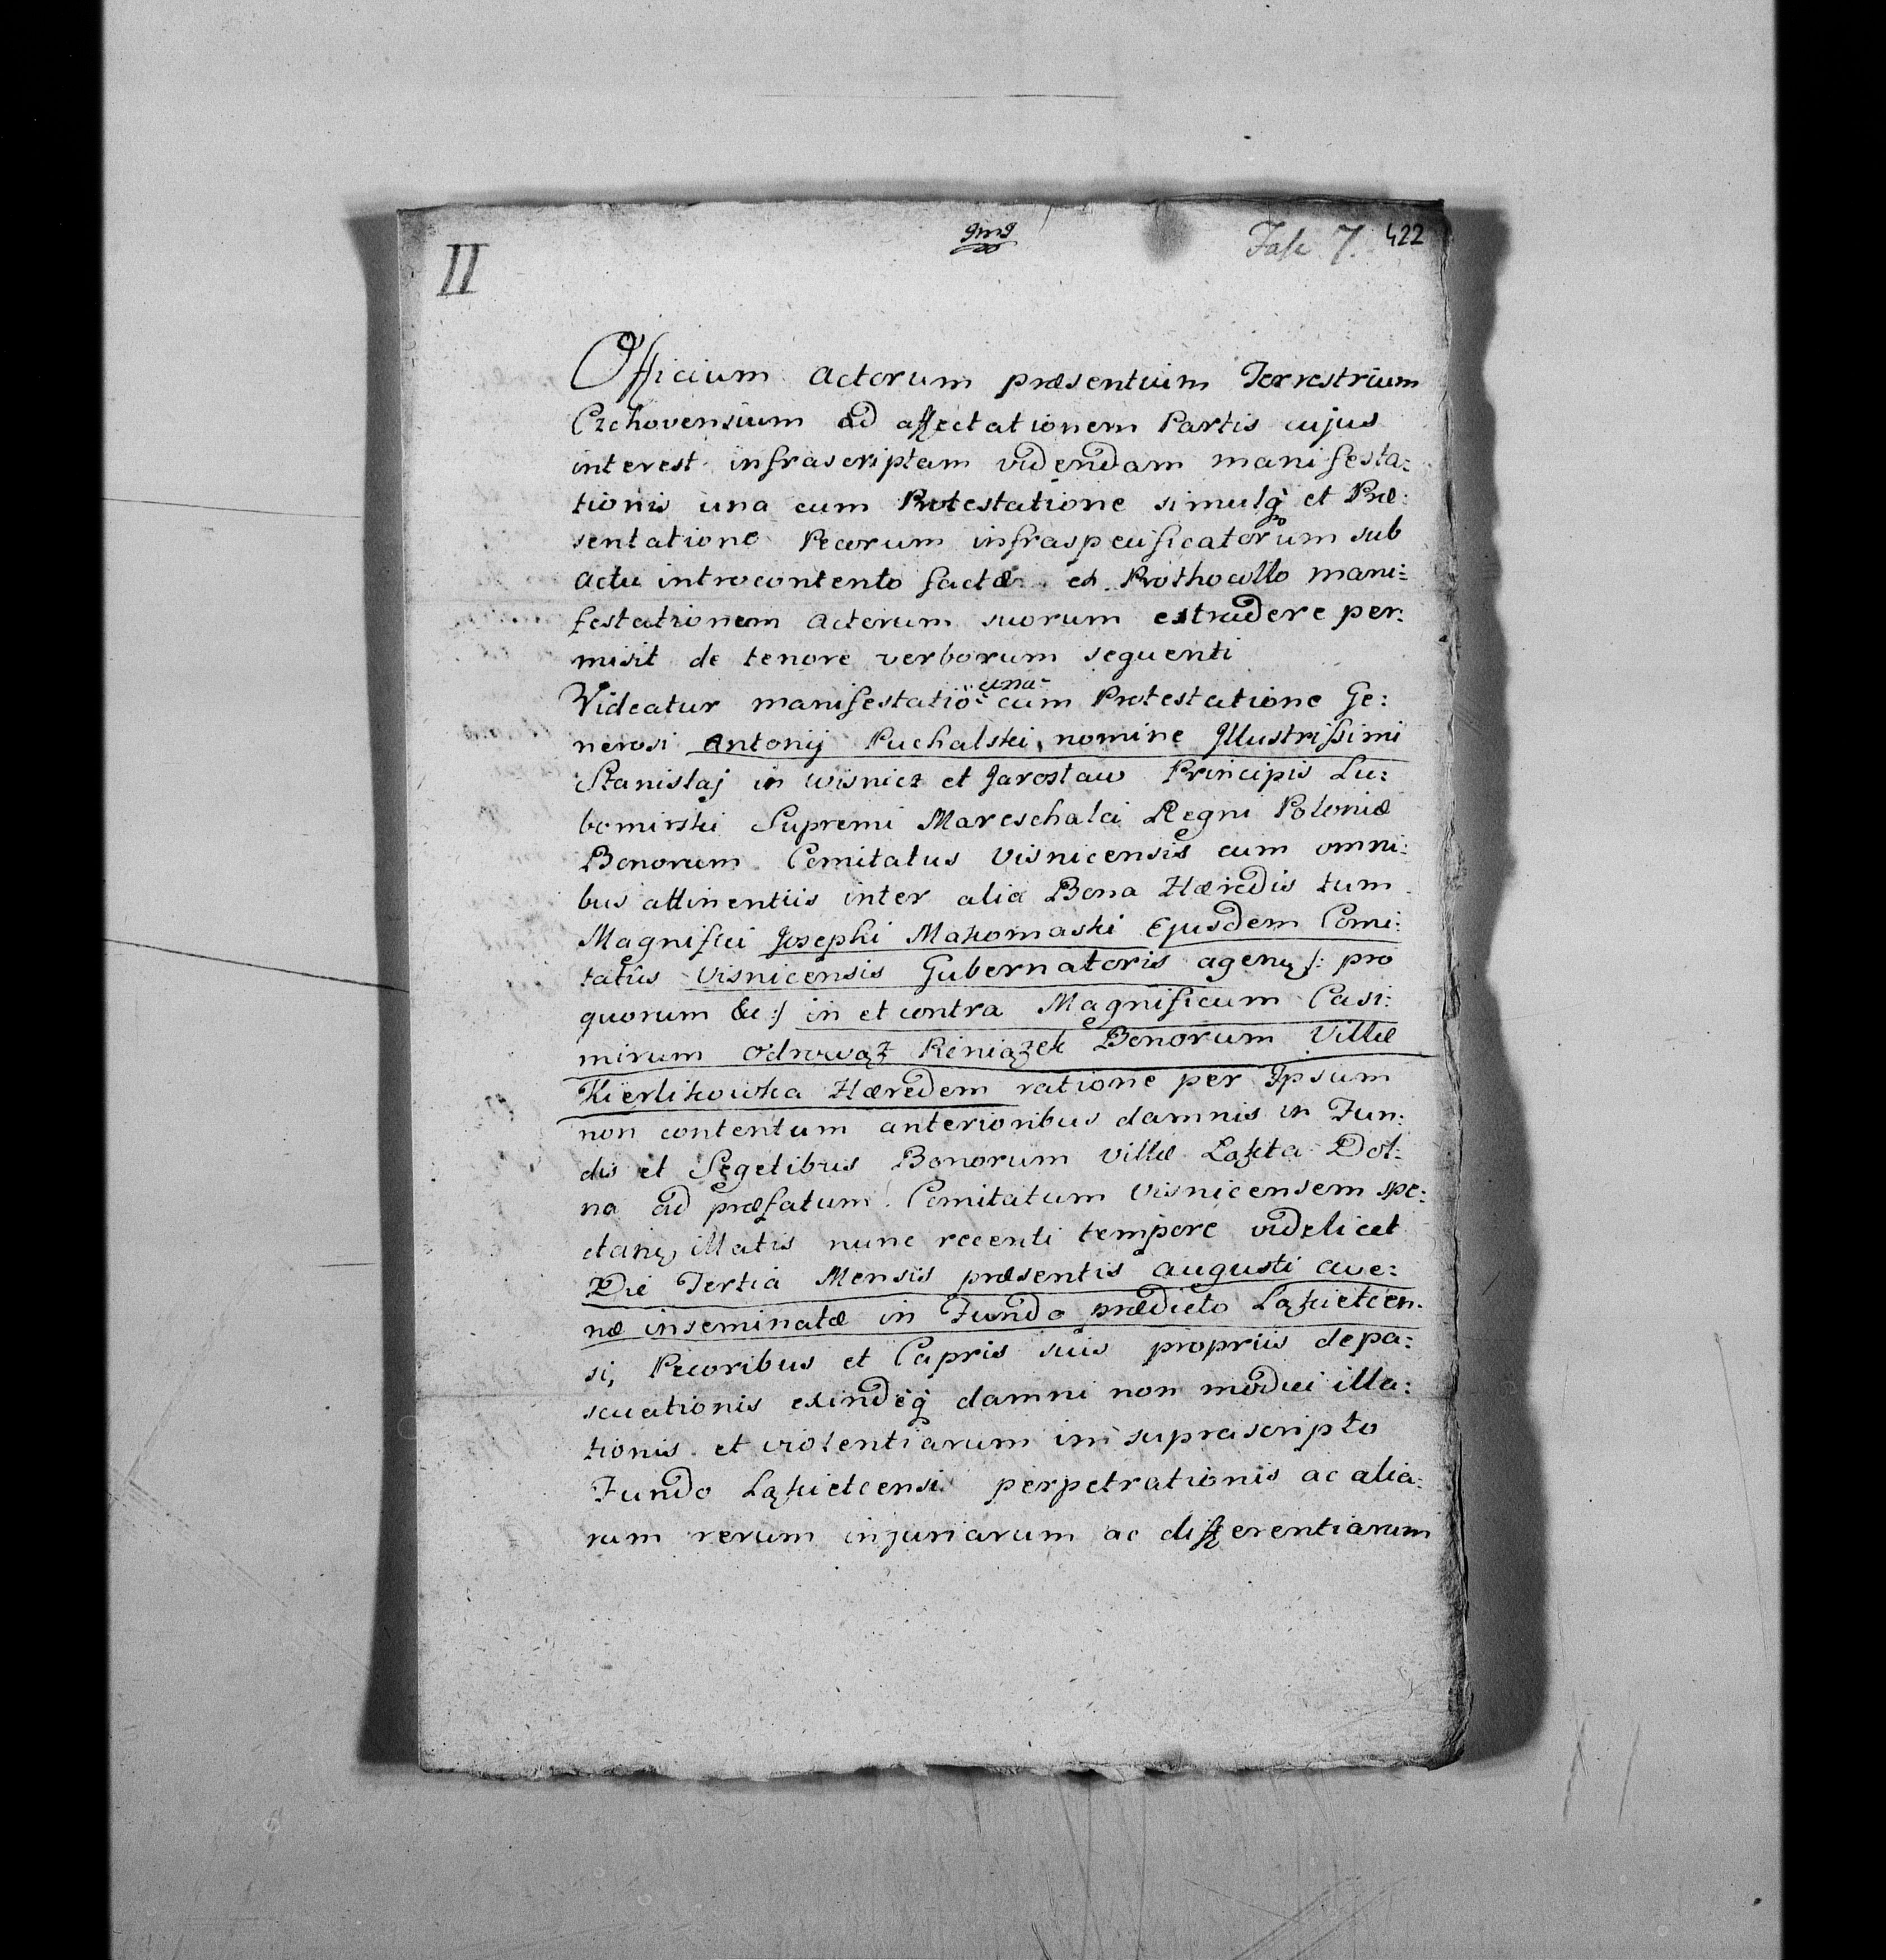 II
Fasc 7. 422
Officium Actorum præsentium Terrestrium
Czchovensium ad affectationem Partis cujus
interest infrascriptam videndam manifesta:
tionis una cum Protestatione simulq̀ et Præ:
sentatione Pecorum infraspecificatorum sub
Actu introcontento factæ ex Prothocollo mani:
festationem Actorum suorum extradere per:
misit de tenore verborum sequenti
Videatur manifestatio una cum Protestatione Ge:
nerosi Antonij Puchalski, nomine Jllustrissimi
Stanislaj in Wisnicz et Jaroslaw Principis Lu:
bomirski Supremi Mareschalci Regni Poloniæ
Bonorum Comitatus Visnicensis cum omni:
bus attinentiis inter alia Bona Hæredis tum
Magnifici Josephi Makomaski Ejusdem Comi:
tatûs Visnicensis Gubernatoris agenꝫ /: pro
quorum &c :/ in et contra Magnificum Casi:
mirum Odrowąż Pieniążek Bonorum Villæ
Kierlikowka Hæredem ratione per Jpsum
non contentum anterioribus damnis in Fun:
dis et Segetibus Bonorum Villæ Łąkta Dol:
na ad præfatum Comitatum Visnicensem spe:
ctanꝫ, illatis nunc recenti tempore videlicet
Die Tertia Mensis præsentis Augusti ave:
næ inseminatæ in Fundo prædicto Łąkietcen:
si, Pecoribus et Capris suis propriis depa:
scuationis exindeq̀ damni non modici illa:
tionis et violentiarum in suprascripto
Fundo Łąkietcensi perpetrationis ac alia:
rum rerum injuriarum ac differentiarum